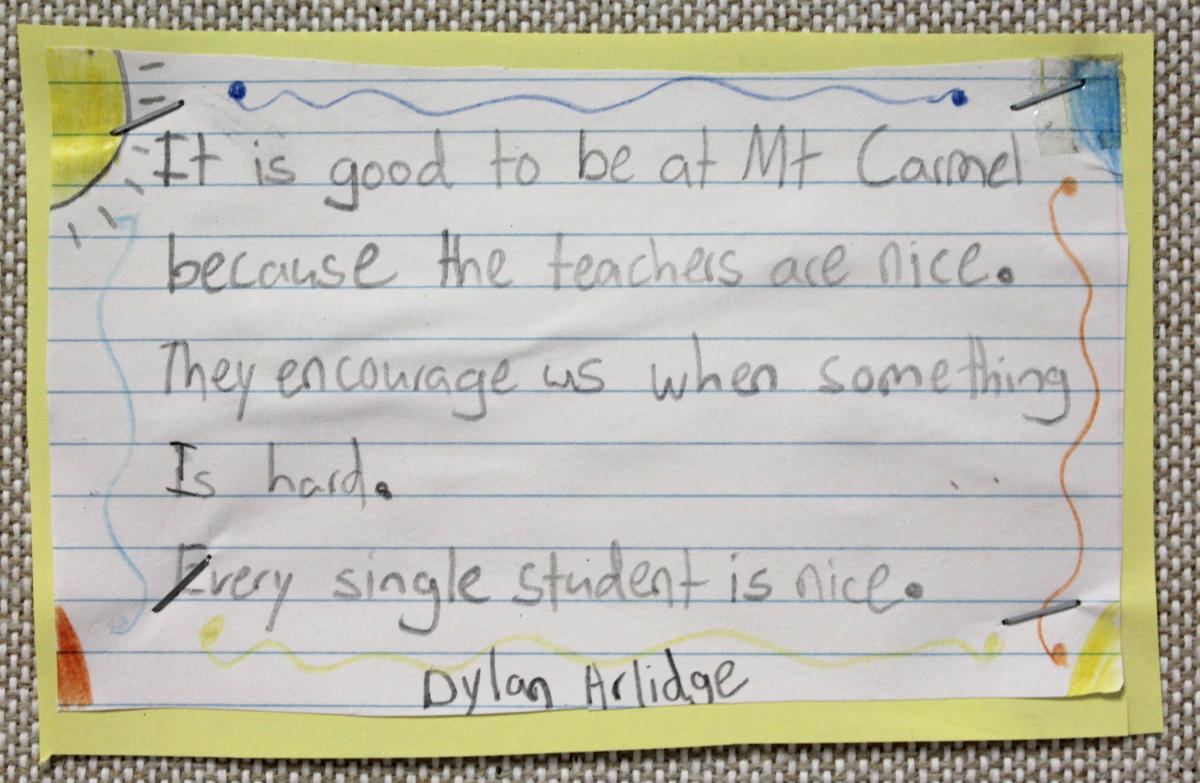 It is good to be at Mt Carmel
because the teachers are nice.
They encourage us when something
Is hard.
Every single student is nice.
Dylan Arlidge